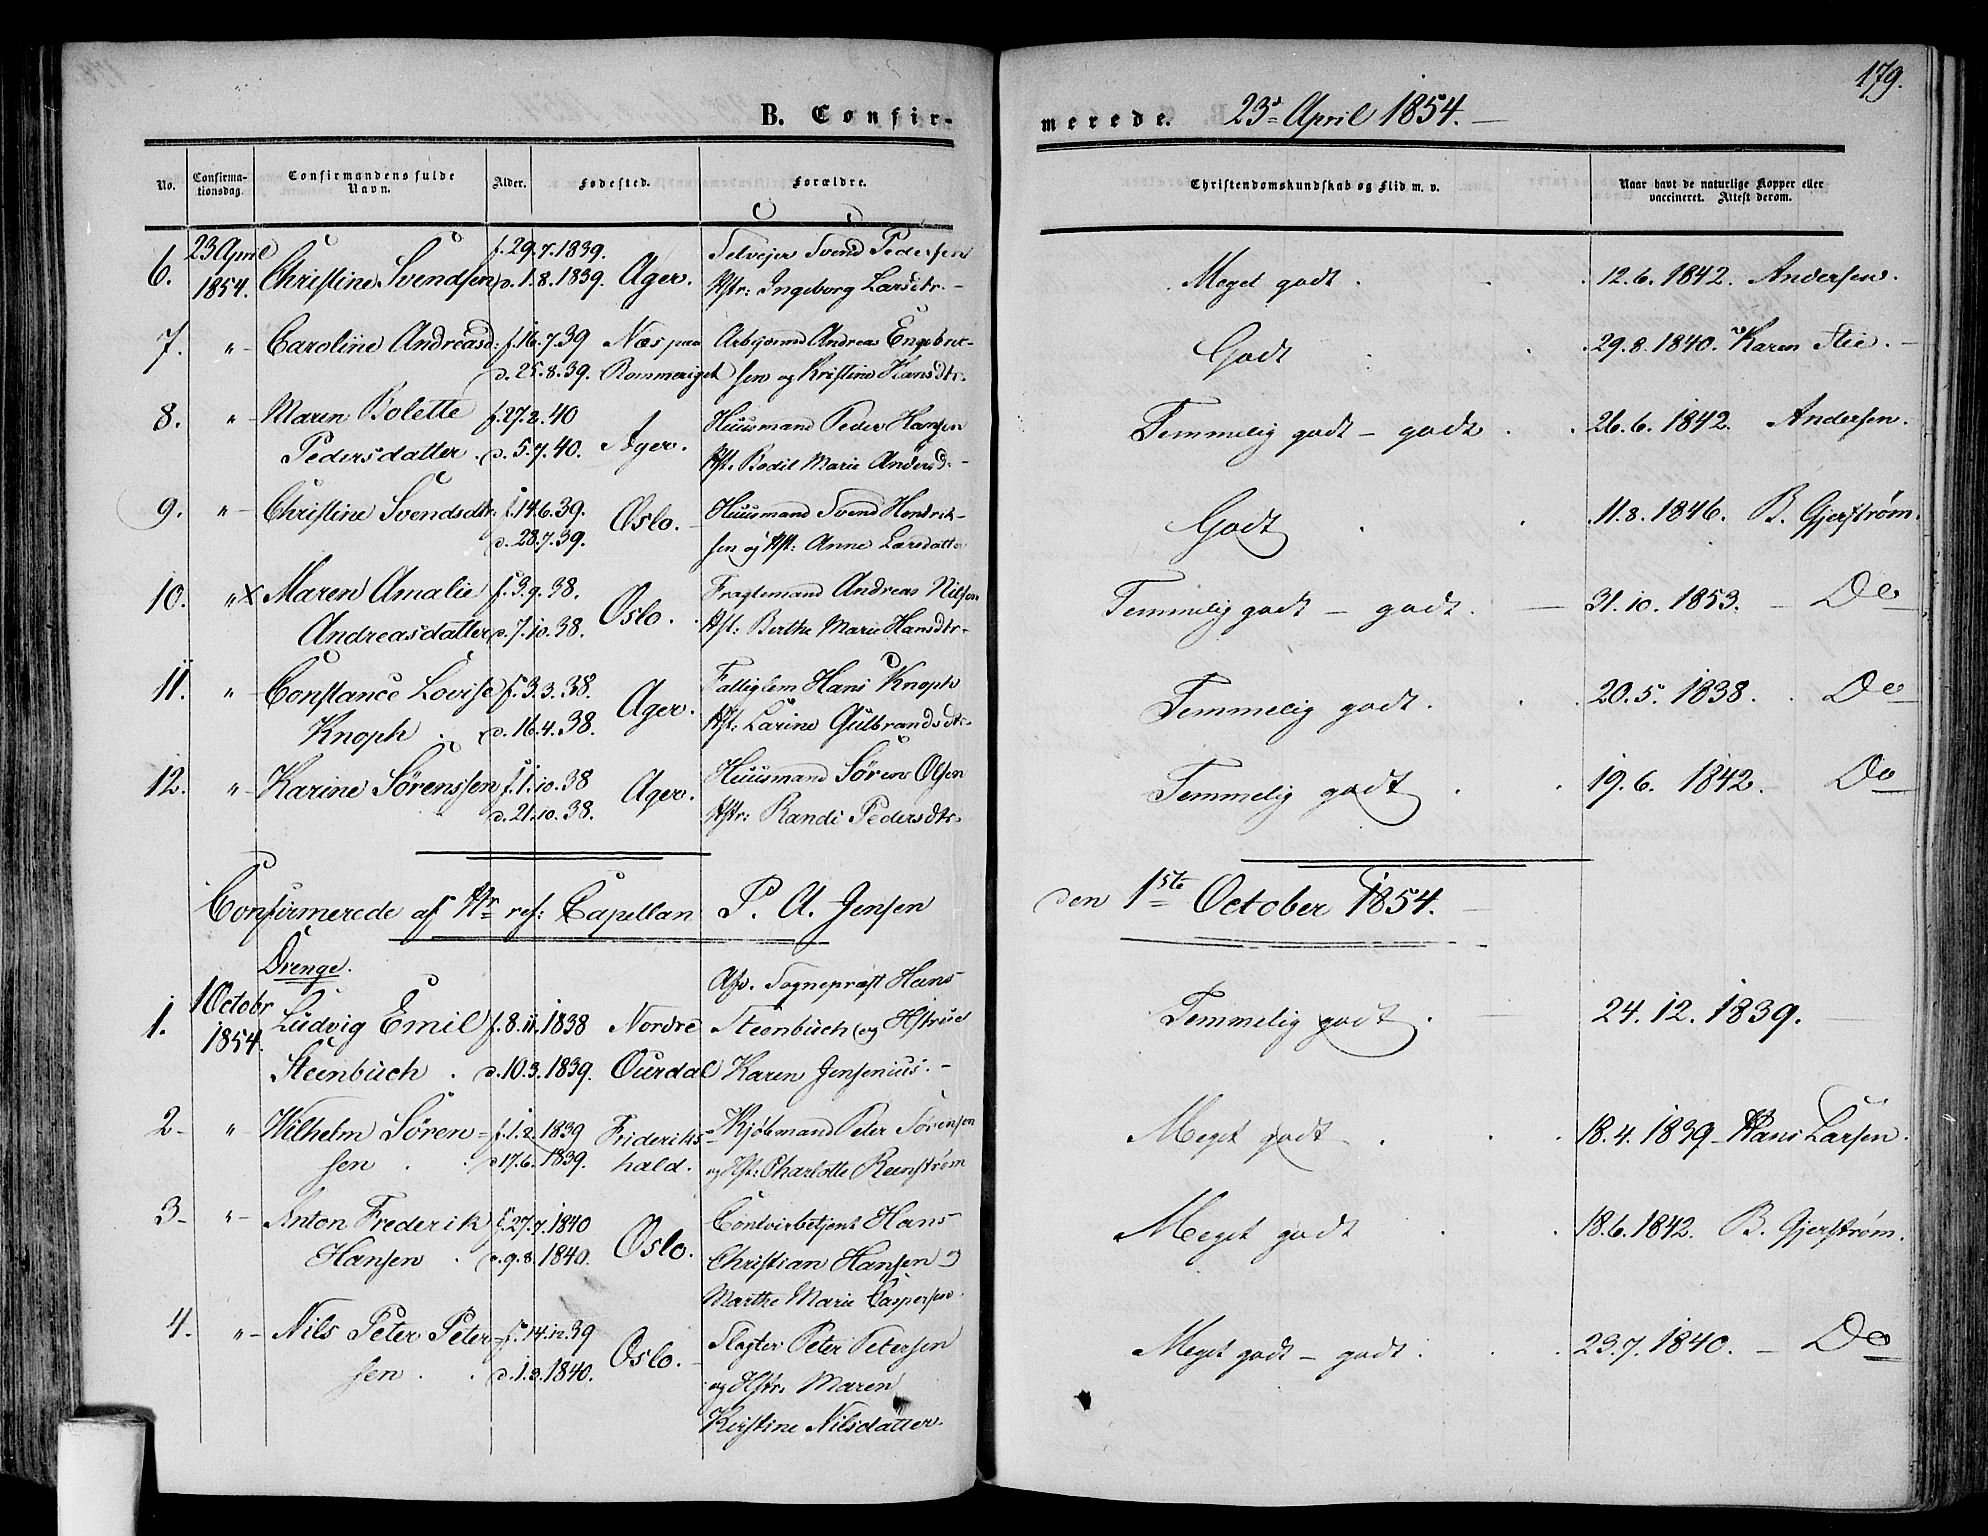 179.
B. Confir-
merede. 23d April 1854.
No. Confirma-tionsdag. Confirmandens fulde Navn. Alder. Fødested. Forældre. Christendomskundskab og Flid m. v. Naar havt de naturlige Kopper eller vaccineret. Attest derom.
6. 23 April Christine Svendsen f. 29.7.1839. Ager. Selvejer Svend Pedersen Meget godt 12.6.1842. Andersen.
1854. d. 1.8.1839. Hstr: Ingeborg Larsdtr.
7. " Caroline Andreasd: f. 16.7.39 Næs paa Arbejsmd Andreas Engebret- Godt 29.8.1840. Karen Lie.
d. 25.8.39. Rommeriget sen og Kristine Hansdtr.
8. " Maren Bolette f. 27.2.40 Ager. Huusmand Peder Hansen Temmelig godt - godt 26.6.1842. Andersen.
Pedersdatter. d. 5.7.40. Hst. Bodil Marie Andersd.
9. " Christine Svendsdtr. f. 14.6.39. Oslo. Huusmand Svend Hendrik- Godt 11.8.1846. B. Gjerstrøm.
d. 28.7.39. sen og Hst: Anne Larsdatter
10. " X Maren Amalie f. 3.9.38. Oslo. Fragtemand Andreas Nilsen Temmelig godt - godt. 31.10.1853. Do
Andreasdatter d. 7.10.38. Hst: Berthe Marie Hansdtr.
11. " Constance Lovise f. 3.3.38. Ager. Fattiglem Hans Knoph Temmelig godt. 20.5.1838. Do
Knoph d. 16.4.38. Hst: Larine Gulbrandsdtr.
12. " Karine Sørenssen f. 1.10.38 Ager. Huusmand Søren Olsen Temmelig godt 19.6.1842. Do
d. 21.10.38. Hstr: Randi Pedersdtr.
Confirmerede af Hr res: Capellan P. A. Jensen den 1ste October 1854.
Drenge.
1. 1 Octobr 1854. Ludvig Emil f. 8.11.1838 Nordre Afs. Sognepræst Hans Temmelig godt. 24.12.1839.
Steenbuch d. 10.3.1839. Ourdal Steenbuch og Hstrue
Karen Jensenius.
2 " Wilhelm Søren- f. 1.2.1839 Frideriks- Kjøbmand Peter Sørensen Meget godt 18.4.1839 Hans Larsen.
sen d. 17.6.1839. hald. og Hst: Charlotte Reenstrøm
3 " Anton Frederik f. 27.7.1840 Oslo. Contoirbetjent Hans Meget godt 18.6.1842. B. Gjerstrøm.
Hansen d. 9.8.1840. Christian Hansen og
Marthe Marie Caspersen.
4. " Nils Peter Peter- f. 14.12.39 Oslo. Slagter Peter Petersen Meget godt - godt. 23.7.1840. Do
sen d. 1.3.1840. og Hstr. Maren
Kirstine Nilsdatter.